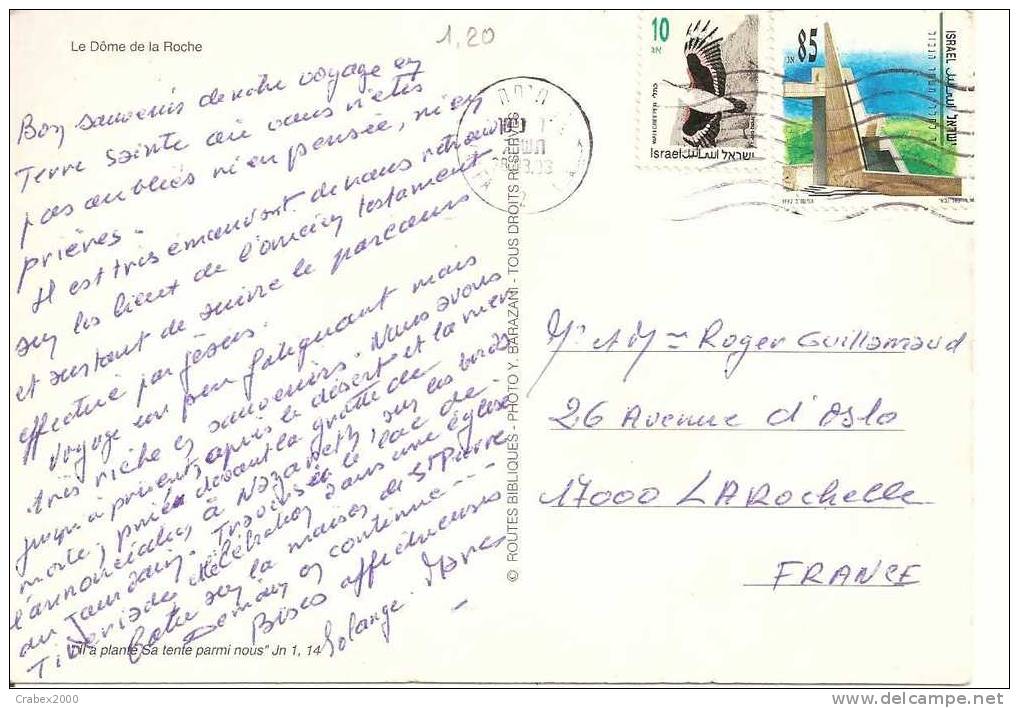 Le Dôme de la Roche
1,20
10
אג
Israel اسرائيل ישראל
85
אג
ISRAEL اسرائيل ישראל
Bon souvenir de notre voyage en
Terre Sainte où vous n'etes
pas oubliés ni en pensée, ni en
prières.
Il est tres émouvant de nous retrouver
sur les lieux de l'ancien testament
et surtout de suivre le parcours
effectué par Jésus.
Voyage un peu fatiguant mais
très riche en souvenirs. Nous avons
jusqu'à présent, après le désert et la mer
morte, prié devant la grotte de
l'annonciation à Nazareth, sur les bords
du Jourdain. Traversée le lac de
Tiberiade Célébration dans une église
batie sur la maison de St Pierre
Demain on continue --
Bises affectueuses
Solange Marc
"Il a planté Sa tente parmi nous" Jn 1, 14
© ROUTES BIBLIQUES - PHOTO Y. BARAZANI - TOUS DROITS RESERVÉS
Mr et Mme Roger Guillamaud
26 Avenue d'Oslo
17000 LA Rochelle
FRANCE
Crabex2000
www.delcampe.net